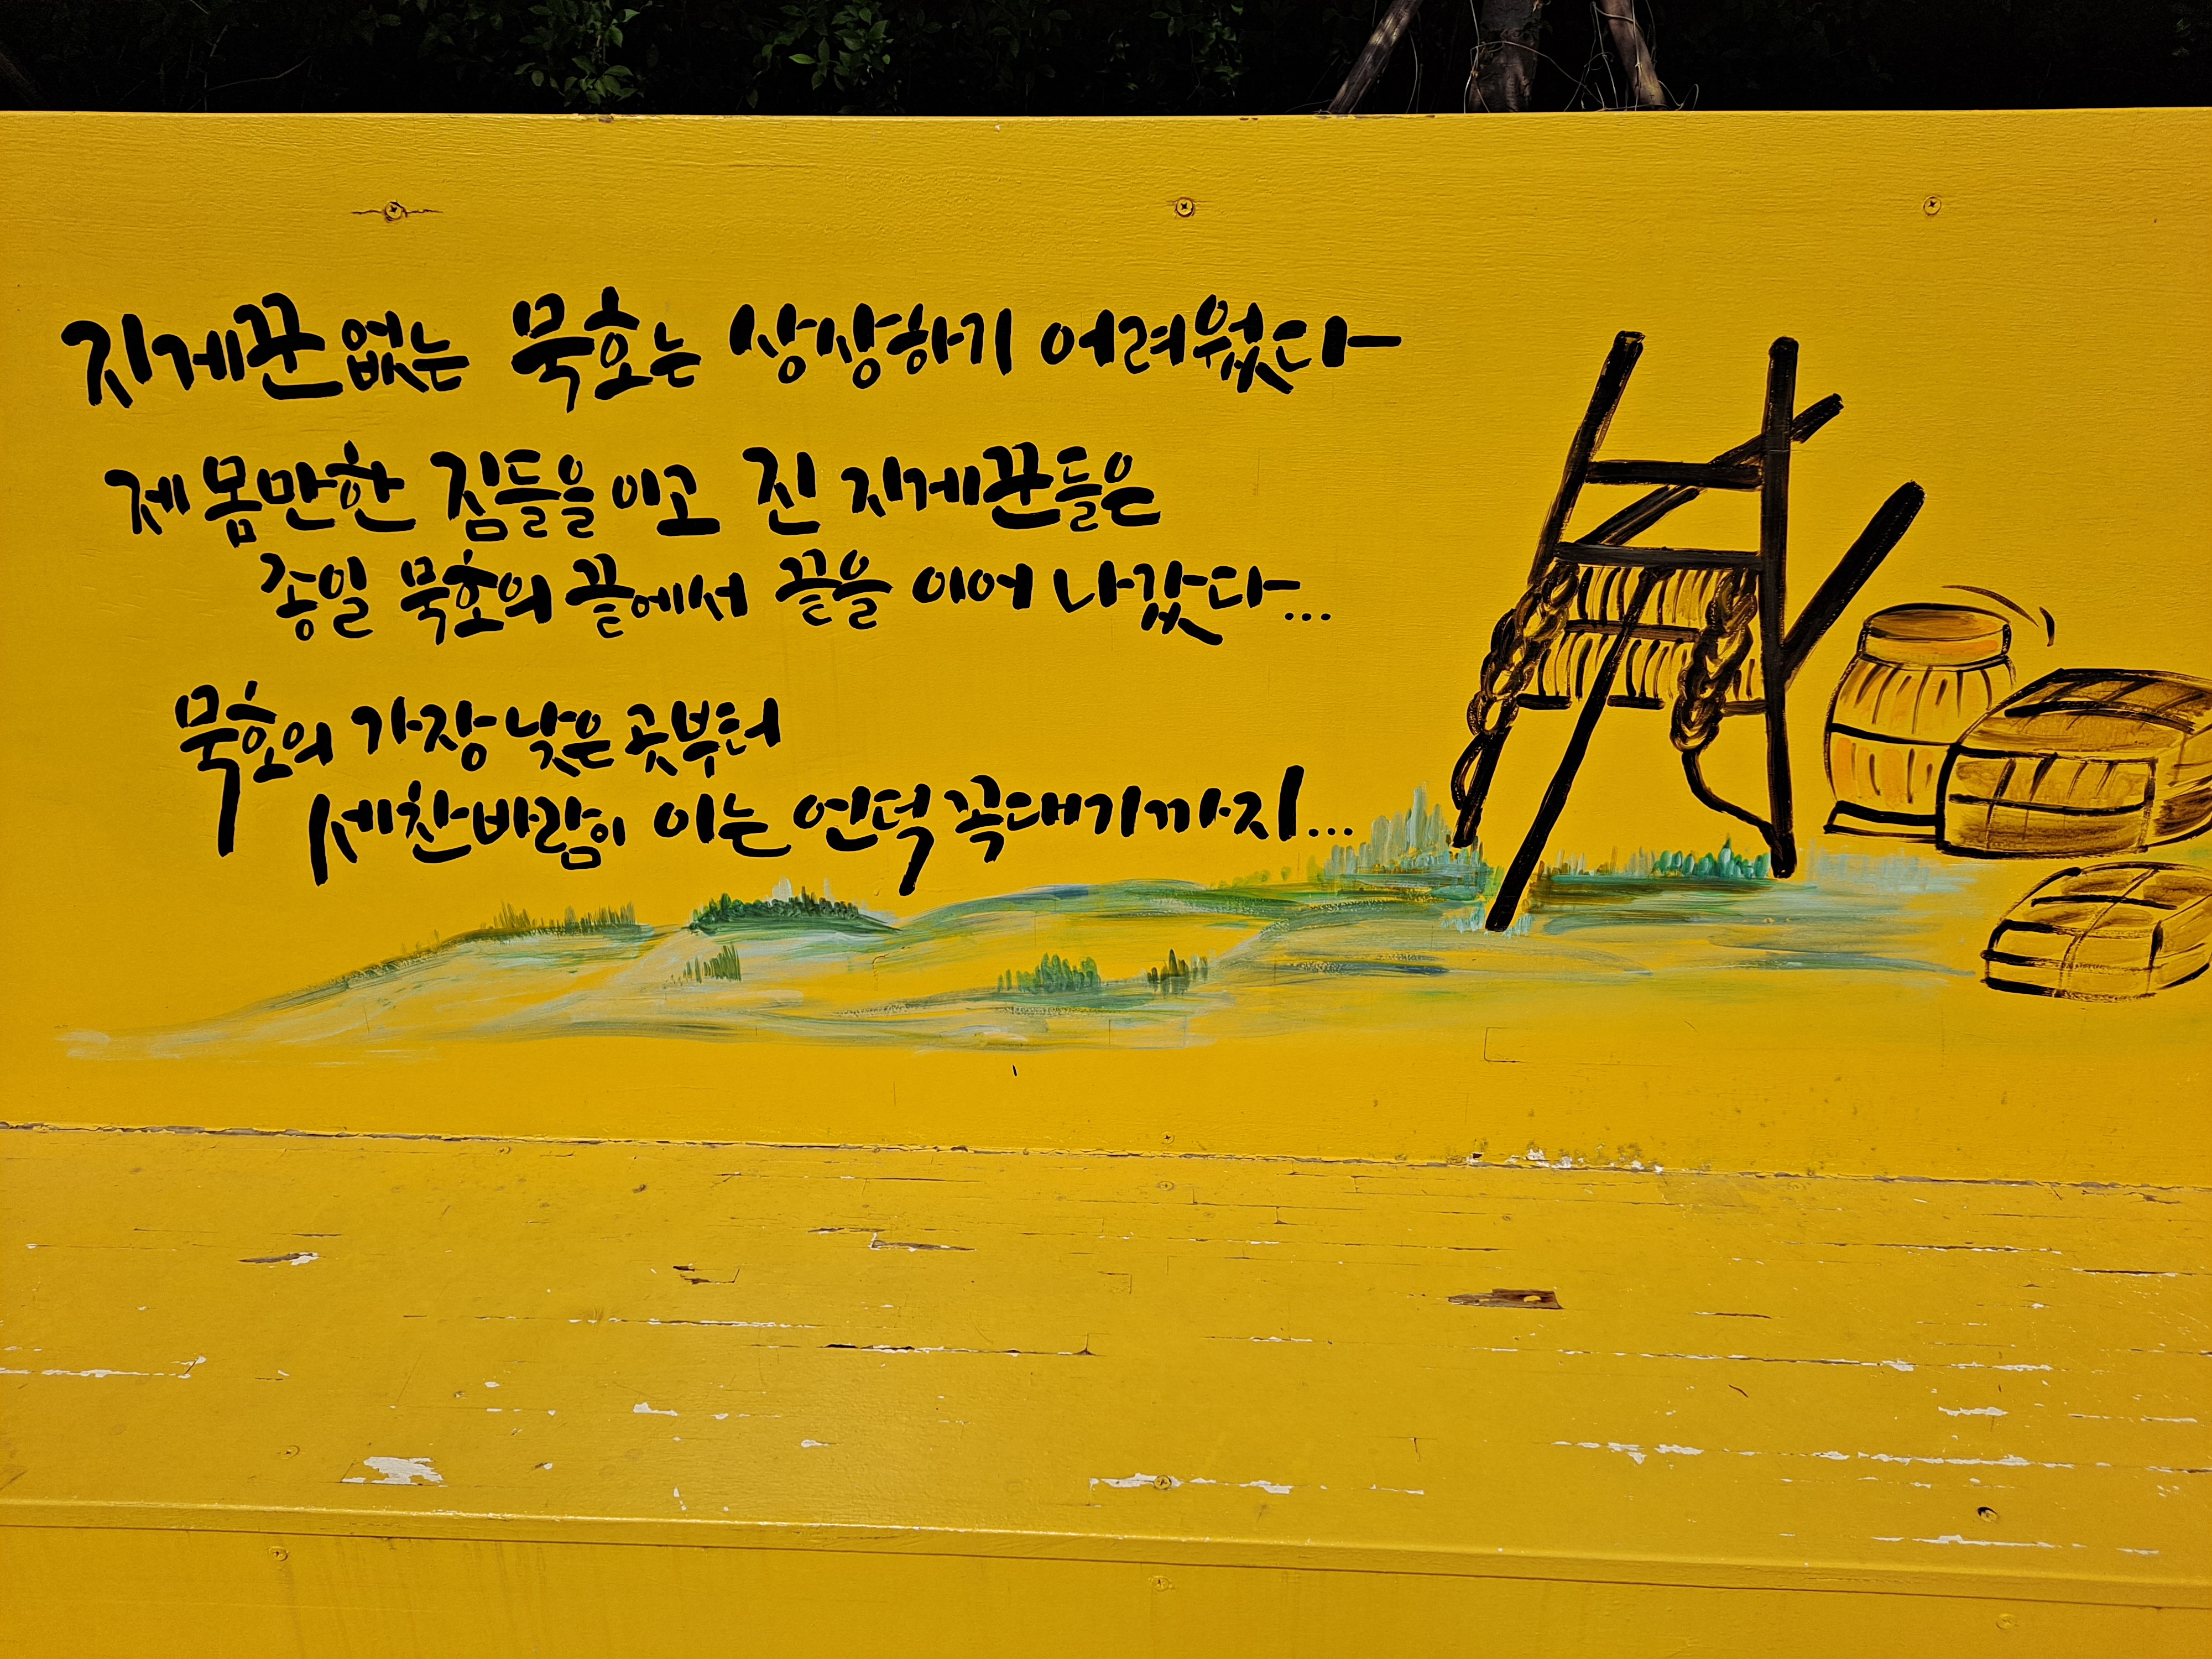 지게꾼 없는 묵호는 상상하기 어려웠다
제 몸만한 짐들을 이고 진 지게꾼들은
종일 묵호의 끝에서 끝을 이어 나갔다...
묵호의 가장 낮은 곳부터
세찬바람이 이는 언덕 꼭대기까지...